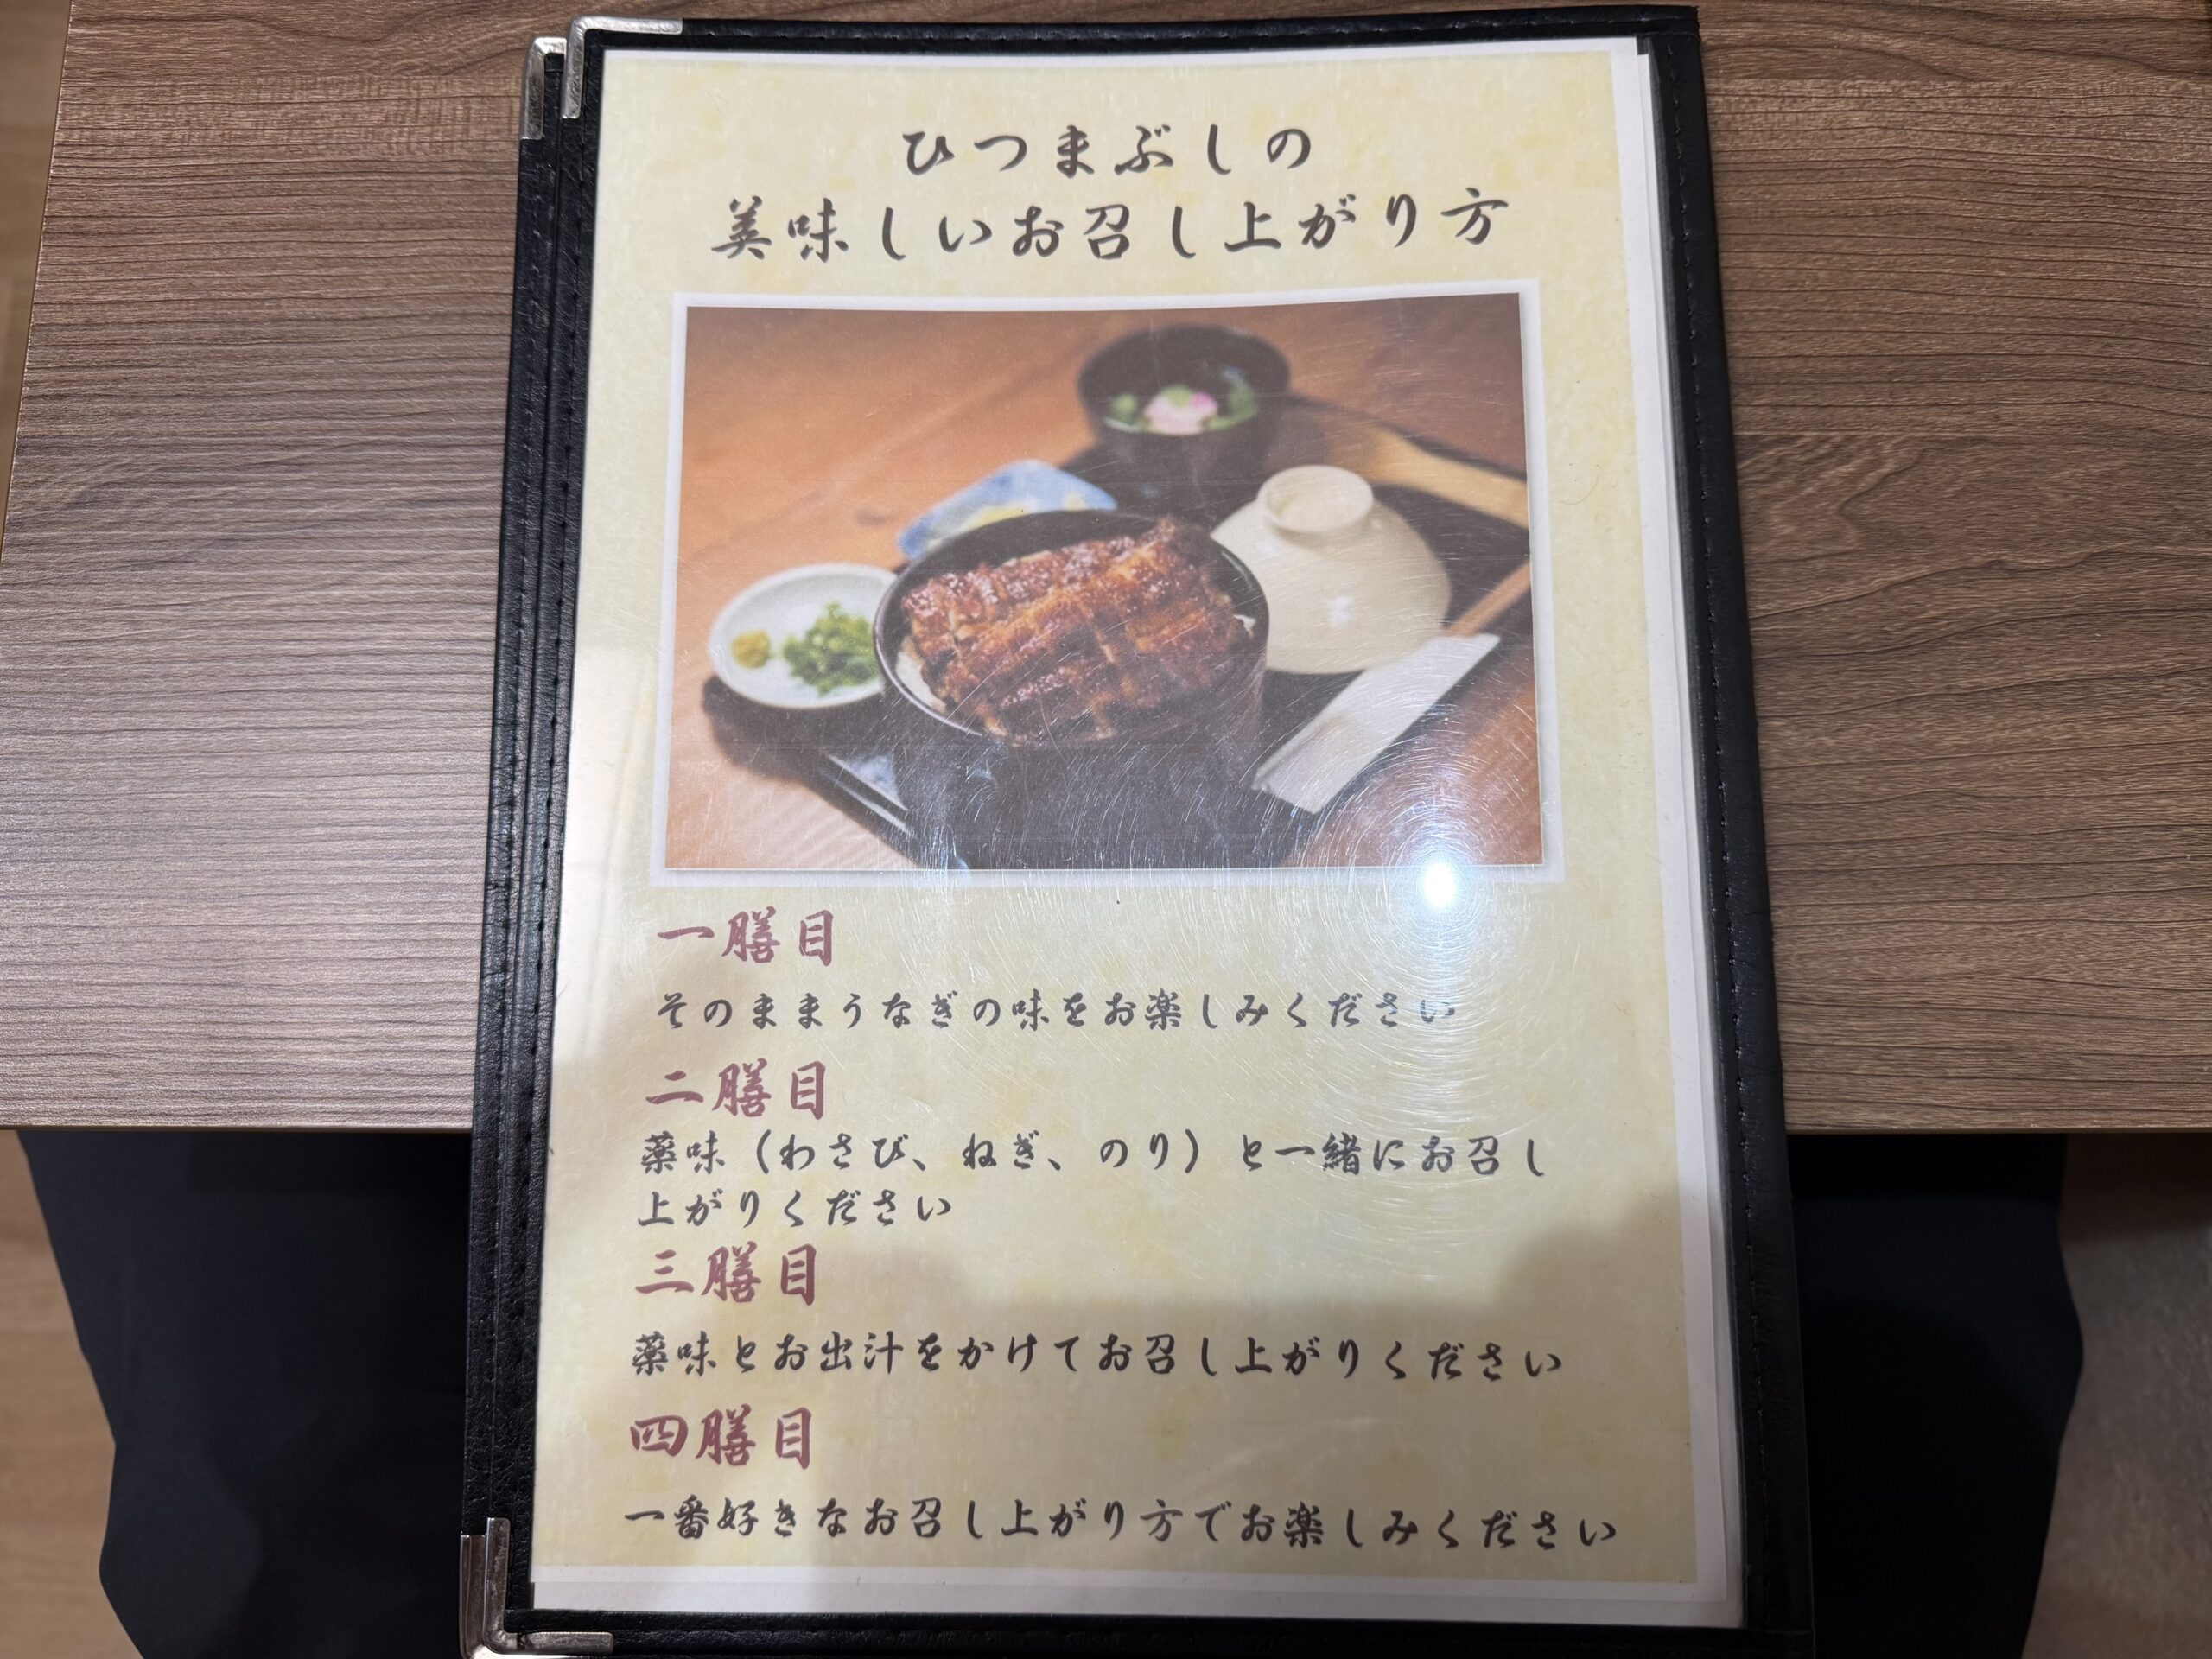 ひつまぶしの
美味しいお召し上がり方
一膳目
そのままうなぎの味をお楽しみください
二膳目
薬味（わさび、ねぎ、のり）と一緒にお召し
上がりください
三膳目
薬味とお出汁をかけてお召し上がりください
四膳目
一番好きなお召し上がり方でお楽しみください